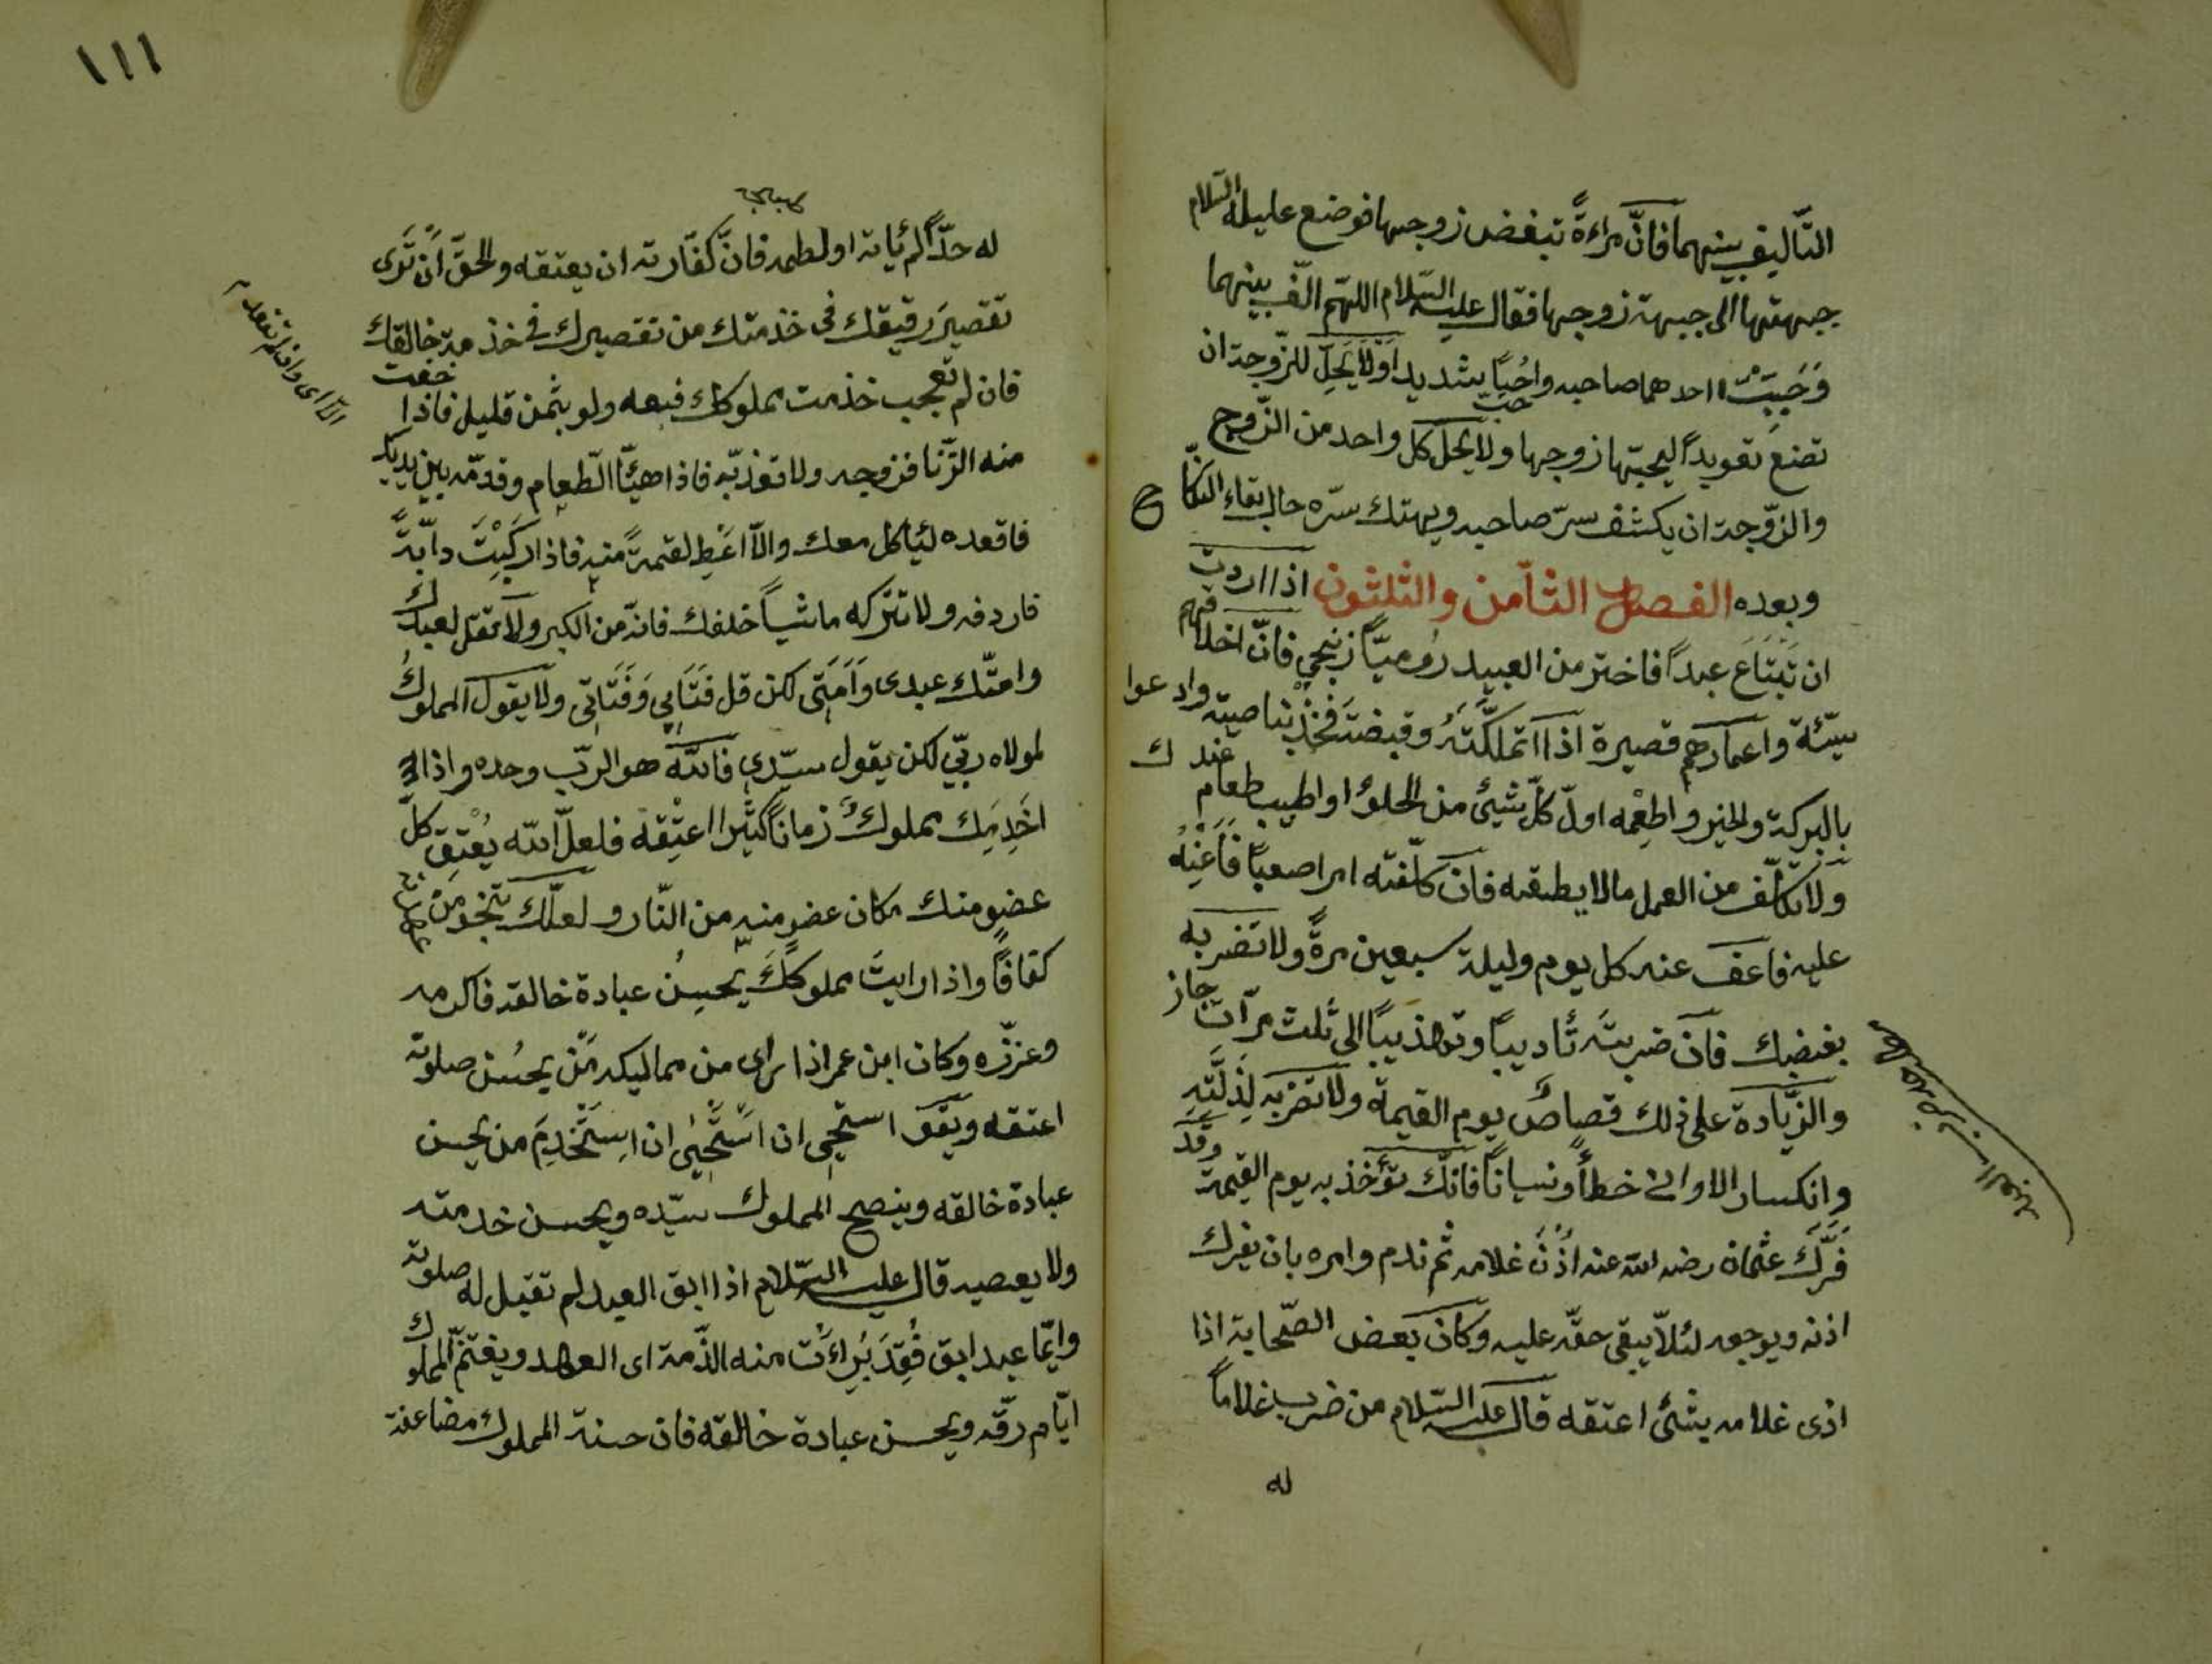 التّأليف بينهما فانّ مراءةً تبغض زوجها فوضع عليه السّلام
جبهتها الى جبهة زوجها فقال عليه السّلام اللهّم الّف بينهما
وَحَبِّبْ احدهما صاحبه حُبًّا شديدا ولا يَحِلّ للزّوجة ان
تضع تعويذاً ليحبّها زوجها ولا يحلّ كل واحد من الزّوج
والزّوجة ان يكشف سرّ صاحبه ويهتك سرّه حال بقاء النكاح
وبعده الفصل الثّامن والثلثون اذا اردت
ان تَبْتَاعَ عبداً فاختر من العبيد رُوميّاً زنجي فانّ اخلاقهم
سيّئة واعمارهم قصيرة اذا تملكّتَهُ وقبضتَ فَخُذْ بناصيته وادعوا
بالبركة والخير واطعِمْه اولّ كلّ شيئ من الحلوا او اطيب طعام عندك
ولا تكلّف من العمل مالا يطيقه فان كلّفته امرا صعباً فَاَعِنْهُ
عليه فاعف عنه كل يوم وليلة سبعين مرّةً ولا تضربه
بغضبك فان ضربتَه تأديباً وتهذيباً الى ثلث مرّات جاز
والزّيادة على ذلك قصاصٌ يوم القيمة ولا تضربه لِذَلَّتِهِ
وانكسار الاوانى خطأً ونسياناً فانّك تؤخذ به يوم القيمة وقد
فَرَّكَ عثمان رضى الله عنه اُذُنَ غلامه ثم ندم وامره بان يفرك
اذنه ويوجعه لئلاّ يبقى حقّه عليه وكان بعض الصّحابة اذا
اذى غلامه بشئ اعتقه قال عليه السّلام من ضرب غلاماً
له
١١١
له حدّاً لم يأته او لطمه فانّ كفّارته ان يعتقه والحقّ اَنْ تَرَى
تقصيرَ رقيقك فى خذمتك من تقصيرك فى خذمة خالقك
فان لم تعجب خذمت مملوكك فبعه ولو بثمن قليل فاذا خفت
منه الزّنا فزوجه ولا تعذبّه فاذا هيّأ الطّعام وقدّمه بين يديك
فاقعده ليأكل معك والاّ اعْطِ لقمةً منه فاذا ركبْتَ دابّةً
فاردفه ولا تتركه ماشياً خلفك فانّه من الكبر ولا تقل لعبدك
وامتك عبدى وَاَمَتِى لكن قل فَتَايَ وَفَتَاتِى ولا يقول المملوكُ
لمولاه ربّي لكن يقول سيّدى فانّه هو الربّ وحده واذا
اخَدِمَك مملوكُ زماناً كثيرا اعتِقه فلعلّ الله يُعْتِق كلّ
عضوٍ منك مكان عضوٍ منه من النّار ولعلّك تنجو من
كفافًا واذا رايتَ مملوكَكَ يحسِنُ عبادة خالقه فاكرمه
وعززّه وكان ابن عمر اذا راى من مماليكه مَنْ يحسُن صلوته
اعتقه ويقول استحيى ان اَسْتَحْيى ان اسْتَخْدِمَ من يحسن
عبادة خالقه وينصح المملوك سيّده ويحسن خدمته
ولا يعصيه قال عليه السّلام اذا ابق العبد لم تقبل له صلوته
وايّما عبد ابق فَقَدْ بَرِاءَت منه الذّمة اى العهد ويغتنم المملوك
ايّام رقّه ويحسن عبادة خالقه فان حسنة المملوك مضاعفة